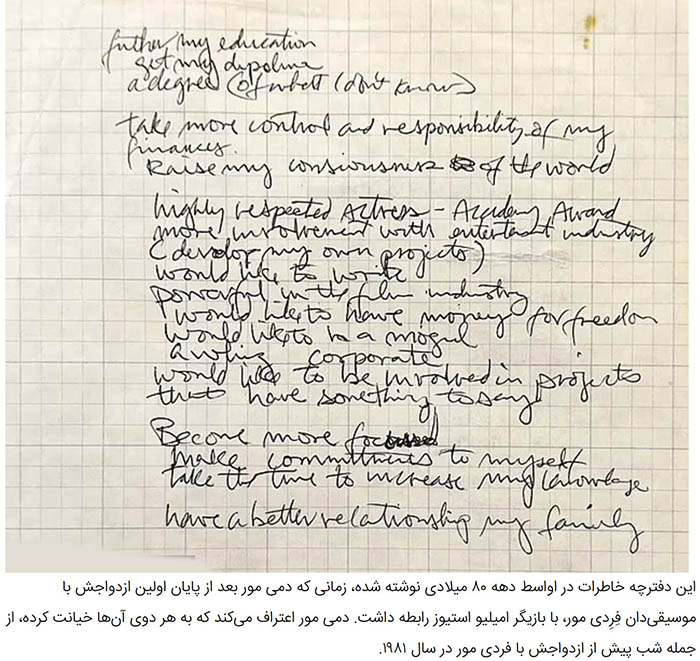 futher my education
get my dipolma
a degree (of whatt (don't know)
take more control and responsibility of my
finances.
Raise my consiousness of the world
highly respected actress - Academy Award
more involvement with entertant industry
(develop my own projects)
would like to write
powerful in the film industry
would like to have money for freedom
would like to be a mogul
corporate
would like to be involved in projects
that have something to say
Become more focused
make committments to myself
take the time to increase my knowledge
have a better relationship my family
این دفترچه خاطرات در اواسط دهه ۸۰ میلادی نوشته شده، زمانی که دمی مور بعد از پایان اولین ازدواجش با
موسیقی‌دان فِرِدی مور، با بازیگر امیلیو استیوز رابطه داشت. دمی مور اعتراف می‌کند که به هر دوی آن‌ها خیانت کرده، از
جمله شب پیش از ازدواجش با فردی مور در سال ۱۹۸۱.